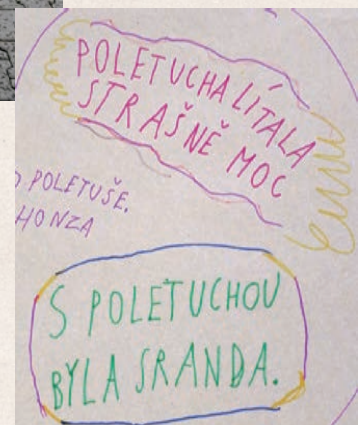 POLETUCHA LÍTALA
STRAŠNĚ MOC
POLETUŠE.
HONZA
S POLETUCHOU
BYLA SRANDA.